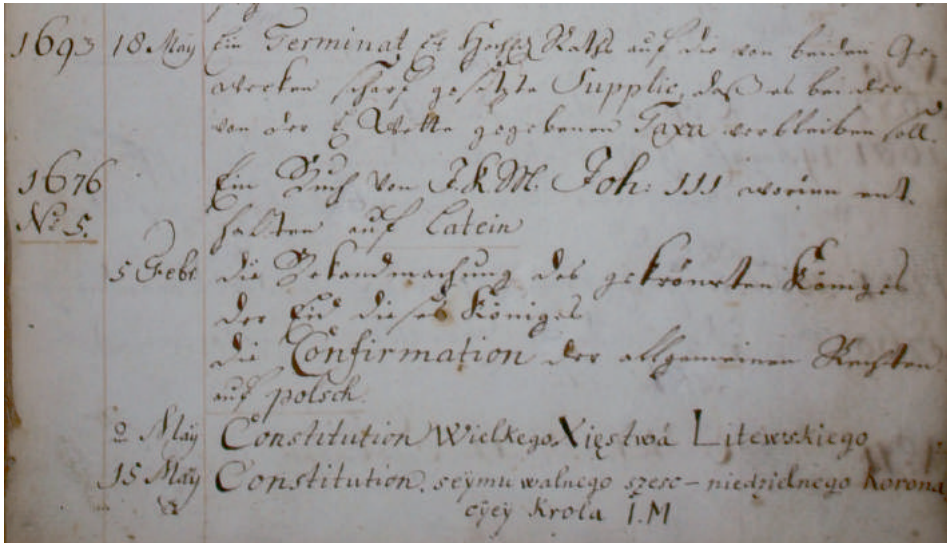 1693 18 May Ein Terminat E. Hochg. Raths auf die von beiden Ge-
wercken scharf gesetzte Supplic, daß es bei der
von der E. Wette gegebenen Taxa verbleiben soll.
1676 Ein Buch von I. K. M. Joh: III worinn ent-
No 5. halten auf Latein
5 Febr. die Bekandmachung des gekrönten Königes
der Eid dieses Königes
die Confirmation der allgemeinen Rechten
auf polsch.
2 May Constitution Wielkego Xięstwa Litewskiego
15 May Constitution. seymu walnego szesc-niedzielnego Korona
cyey Krola I. M